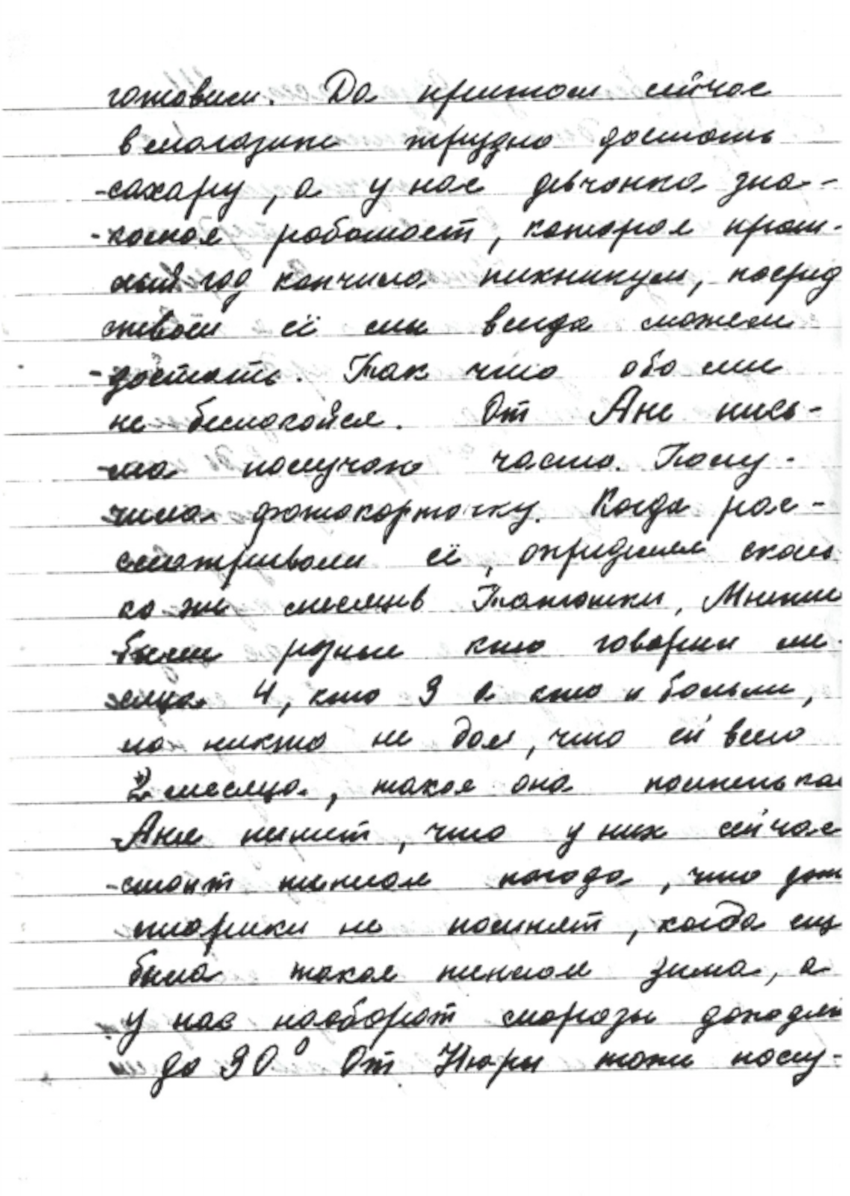 готовим. Да притом сейчас
в магазине трудно достать
сахару, а у нас девчонка зна-
-комая работает, которая прош-
лый год кончила техникум, посред
ством её мы всегда можем
-достать. Так что обо мне
не беспокойся. От Ани пись-
ма получаю часто. Полу-
чила фотокарточку. Когда рас-
сматривали её, определяли сколь
ко же месяцев Танюшки, Мнения
были разные кто говорил ме
сяца 4, кто 3 а кто и больше,
но никто не дал, что ей всего
2 месяца, такая она полненькая
Аня пишет, что у них сейчас
стоит тёплая погода, что даж
старики не помнят, когда ещ
была такая тёплая зима, а
у нас наоборот морозы доходят
до 30° От Нюры тоже полу-